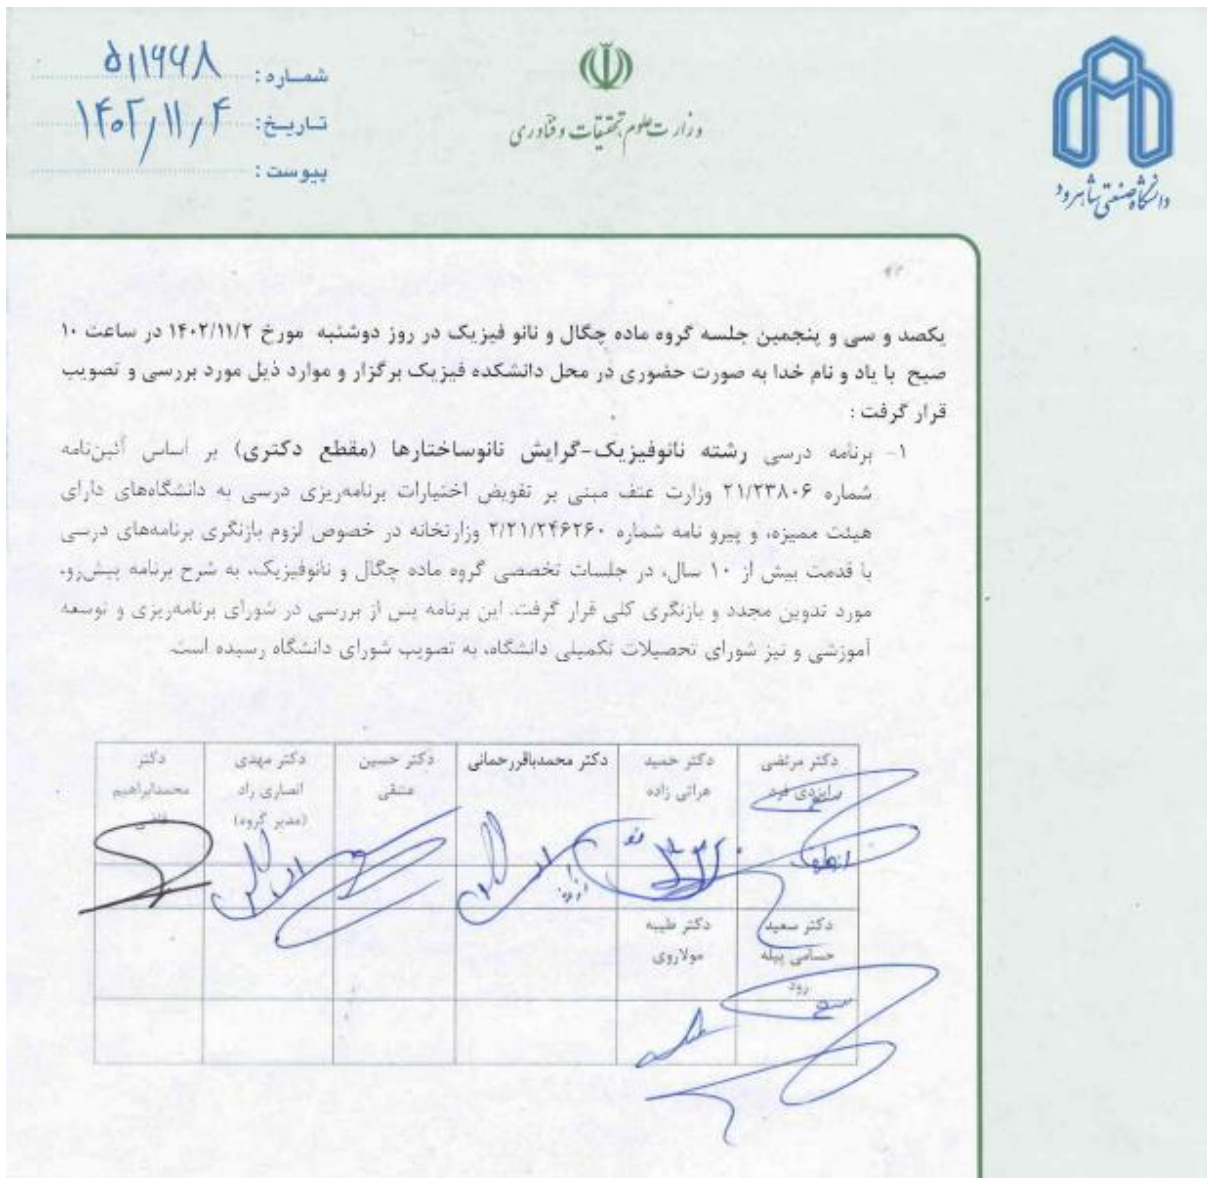 شماره: ۵۱۱۶۶۸
تاریخ: ۱۴۰۲/۱۱/۴
پیوست:
وزارت علوم، تحقیقات و فنّاوری
دانشگاه صنعتی شاهرود
یکصد و سی و پنجمین جلسه گروه ماده چگال و نانو فیزیک در روز دوشنبه مورخ ۱۴۰۲/۱۱/۲ در ساعت ۱۰
صبح با یاد و نام خدا به صورت حضوری در محل دانشکده فیزیک برگزار و موارد ذیل مورد بررسی و تصویب
قرار گرفت :
۱- برنامه درسی رشته نانوفیزیک-گرایش نانوساختارها (مقطع دکتری) بر اساس آئین‌نامه
شماره ۲۱/۲۳۸۰۶ وزارت عتف مبنی بر تفویض اختیارات برنامه‌ریزی درسی به دانشگاه‌های دارای
هیئت ممیزه، و پیرو نامه شماره ۲/۲۱/۲۴۶۲۶۰ وزارتخانه در خصوص لزوم بازنگری برنامه‌های درسی
با قدمت بیش از ۱۰ سال، در جلسات تخصصی گروه ماده چگال و نانوفیزیک، به شرح برنامه پیش‌رو،
مورد تدوین مجدد و بازنگری کلی قرار گرفت. این برنامه پس از بررسی در شورای برنامه‌ریزی و توسعه
آموزشی و نیز شورای تحصیلات تکمیلی دانشگاه، به تصویب شورای دانشگاه رسیده است.
دکتر مرتضی
ایزدی فرد
دکتر حمید
هراتی زاده
دکتر محمدباقررحمانی
دکتر حسین
عشقی
دکتر مهدی
انصاری راد
(مدیر گروه)
دکتر
محمدابراهیم
دکتر سعید
حسامی پیله
رود
دکتر طیبه
مولاروی